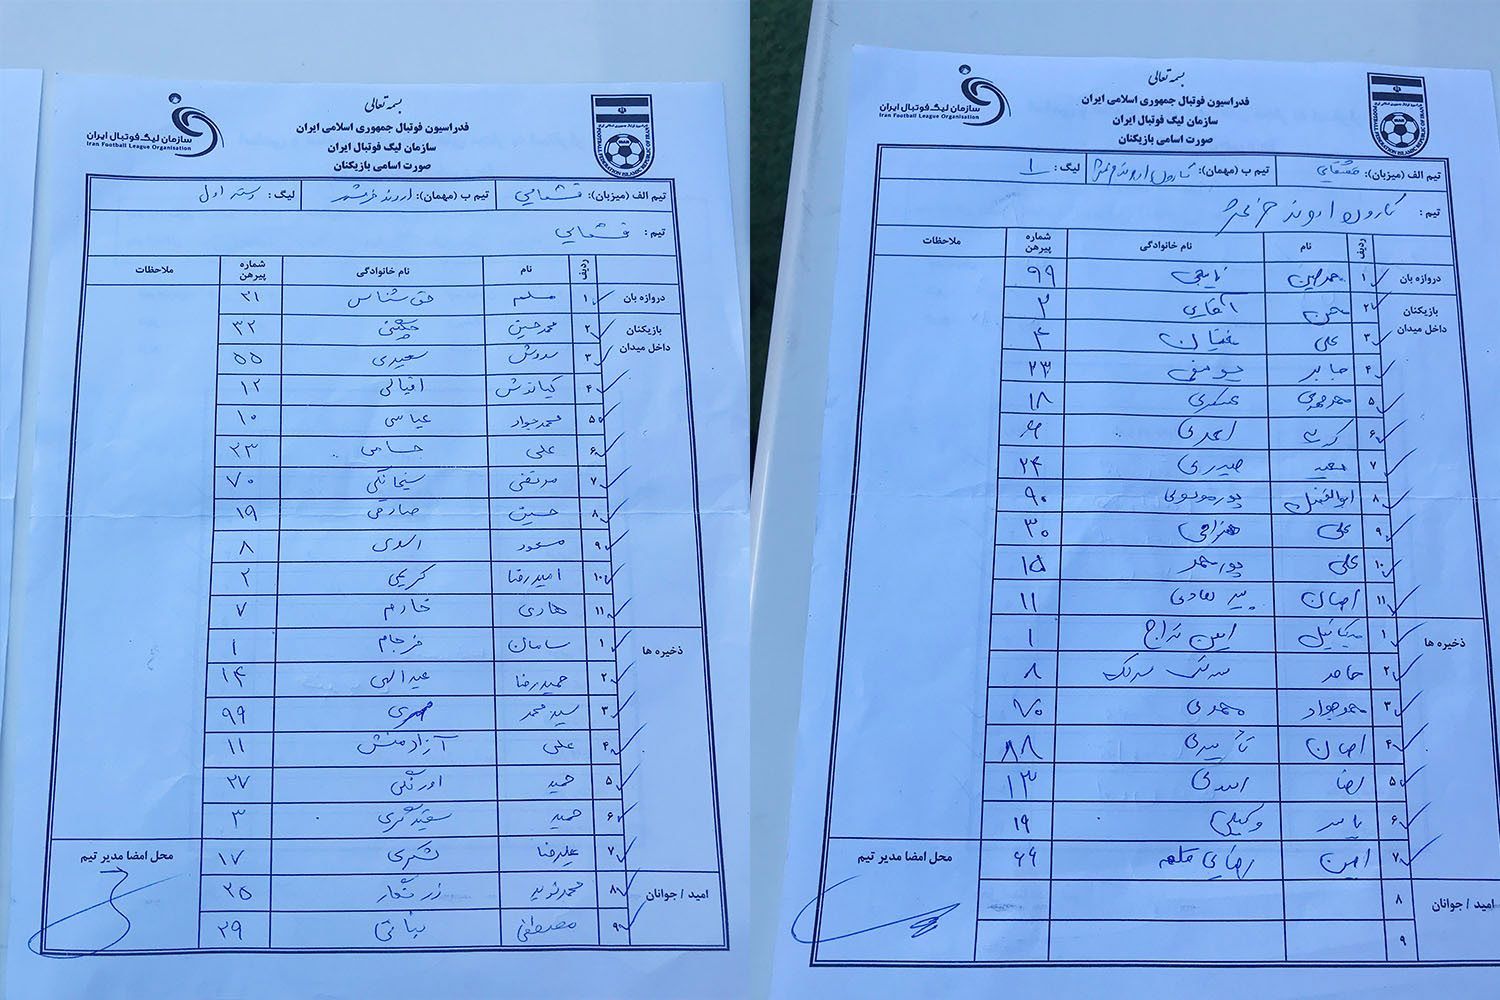 بسمه تعالی
فدراسیون فوتبال جمهوری اسلامی ایران
سازمان لیگ فوتبال ایران
صورت اسامی بازیکنان
سازمان لیگ فوتبال ایران
Iran Football League Organisation
FOOTBALL FEDERATION ISLAMIC REPUBLIC OF IRAN
تیم الف (میزبان): قشقایی تیم ب (مهمان): اروند خرمشهر لیگ: دسته اول
تیم: قشقایی
ردیف نام نام خانوادگی شماره پیرهن ملاحظات
دروازه بان ۱ مسلم حق شناس ۲۱
بازیکنان داخل میدان ۲ محمدحسین ۳۲
۳ سروش سعیدی ۵۵
۴ کیانوش اقبالی ۱۲
۵ محمدجواد عباسی ۱۰
۶ علی حسامی ۳۳
۷ مرتضی ۷۰
۸ حسین صارمی ۱۹
۹ مسعود اسدی ۸
۱۰ امیدرضا کریمی ۲
۱۱ هادی خادم ۷
ذخیره ها ۱ سامان فرجام ۱
۲ حمیدرضا عبدالهی ۱۴
۳ سیدمحمد ۹۹
۴ علی آزادمنش ۱۱
۵ حمید اورنگی ۲۷
۶ حمید ۳
۷ علیرضا لشکری ۱۷
امید / جوانان ۸ محمدنوید زرشعار ۲۵
۹ مصطفی بیاتی ۲۹
محل امضا مدیر تیم
بسمه تعالی
فدراسیون فوتبال جمهوری اسلامی ایران
سازمان لیگ فوتبال ایران
صورت اسامی بازیکنان
سازمان لیگ فوتبال ایران
Iran Football League Organisation
FOOTBALL FEDERATION ISLAMIC REPUBLIC OF IRAN
تیم الف (میزبان): قشقایی تیم ب (مهمان): کارون اروند خرمشهر لیگ: ۱
تیم: کارون اروند خرمشهر
ردیف نام نام خانوادگی شماره پیرهن ملاحظات
دروازه بان ۱ محمدامین نایجی ۹۹
بازیکنان داخل میدان ۲ محسن آقای ۳
۳ علی ۴
۴ جابر یوسفی ۲۳
۵ محمدمهدی عسکری ۱۸
۶ احمدی
۷ سعید حیدری ۲۴
۸ ابوالفضل پورموسوی ۹۰
۹ علی هزامی ۳۰
۱۰ علی پورمحمد ۱۵
۱۱ احسان پیر هادی ۱۱
ذخیره ها ۱ میکائیل امین تراج ۱
۲ حامد سرتک سرتک ۸
۳ محمدجواد محمدی ۷۰
۴ احسان تأییدی ۸۸
۵ رضا اسدی ۱۳
۶ یاسر وکیلی ۱۹
۷ امین رضایی ۶۶
امید / جوانان ۸
۹
محل امضا مدیر تیم